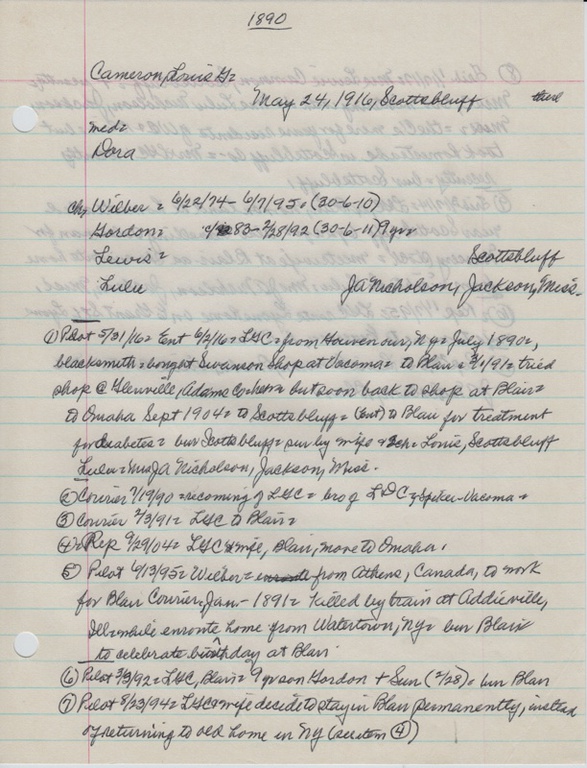 1890
Cameron, Louis G=
May 24, 1916, Scottsbluff
med=
Dora
ch, Wilber = 6/22/74 - 6/7/95 = (30-6-10)
Gordon = c/83 - 2/28/92 (30-6-11) 9 yr=
Lewis = Scottsbluff
Lulu JA Nicholson, Jackson, Miss.
① Pilot 5/31/16 = Ent 6/2/16 = LGC = from Gouverneur, Ny = July 1890=,
blacksmith = bought Swanson Shop at Vacoma = to Blair = 3/1/91 = tried
shop @ Glenville, Adams Co but soon back to shop at Blair=
to Omaha Sept 1904 = to Scottsbluff = (Ent) to Blair for treatment
for diabetes = bur Scottsbluff = sur by wife + 2ch = Louis, Scottsbluff
Lulu = Mrs JA Nicholson, Jackson, Miss.
② Courier 7/19/90 = coming of LGC = bro of LDC = Vacoma =
③ Courier 2/3/91 = LGC to Blair=
④ = Rep 9/29/04 = LGC & wife, Blair, move to Omaha.
⑤ Pilot 6/13/95 = Wilber = from Athens, Canada, to work
for Blair Courier, Jan - 1891 = Killed by train at Addieville,
Ill = while enroute home from Watertown, Ny = bur Blair
to celebrate birthday at Blair.
⑥ Pilot 3/3/92 = LGC, Blair = 9 yr son Gordon + Sun (2/28) = bur Blair
⑦ Pilot 8/23/94 = LGC & wife decide to stay in Blair permanently, instead
of returning to old home in NY (see item ④)